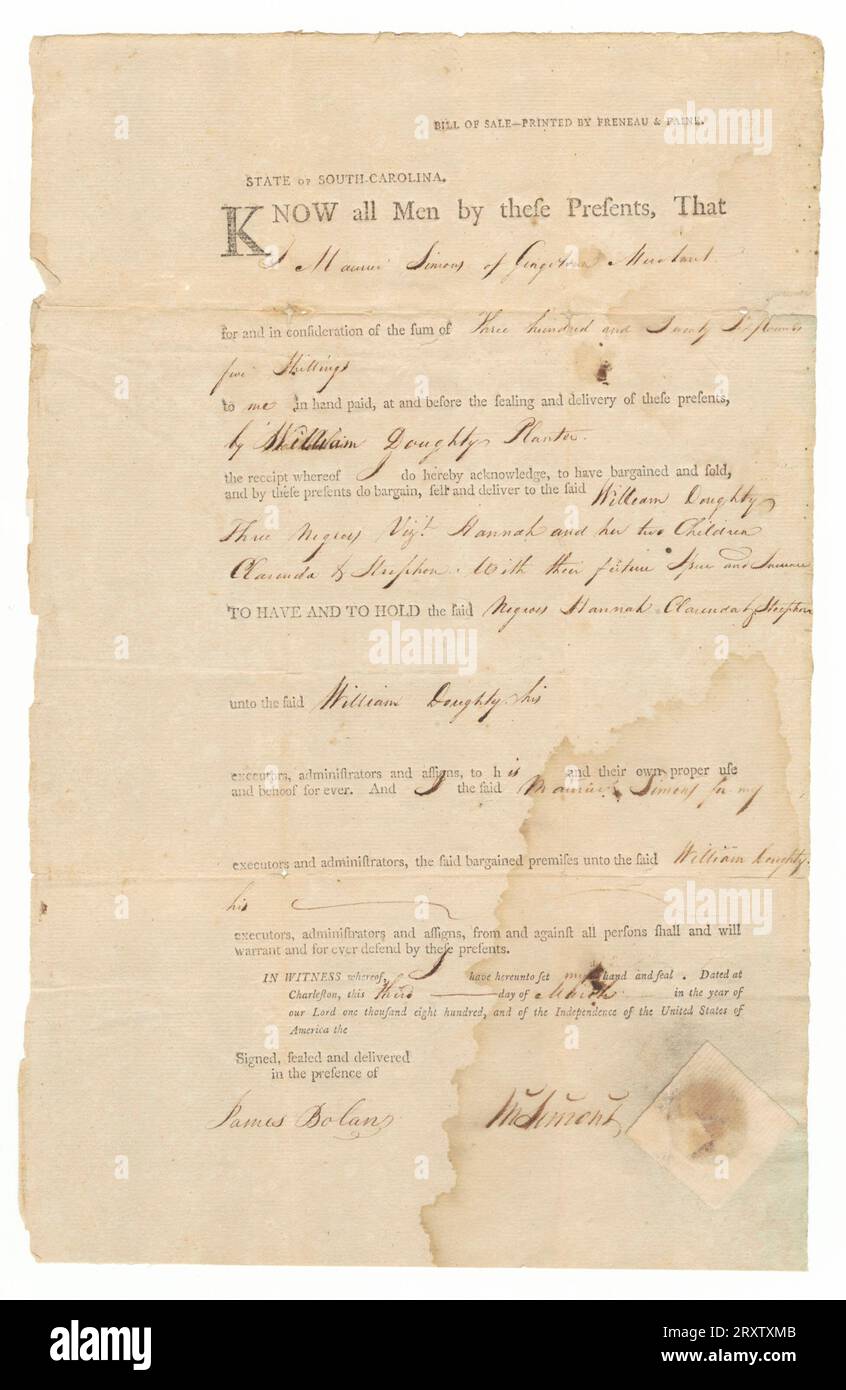 BILL OF SALE—PRINTED BY FRENEAU & PAINE.
STATE OF SOUTH-CAROLINA.
KNOW all Men by theſe Preſents, That
I Maurice Simons of Merchant
for and in conſideration of the ſum of Three hundred and Twenty Pounds
five Shillings
to me in hand paid, at and before the ſealing and delivery of theſe preſents,
by William Doughty Planter.
the receipt whereof I do hereby acknowledge, to have bargained and ſold,
and by theſe preſents do bargain, ſell and deliver to the ſaid William Doughty
Three Negroes Vizt. Hannah and her two Children
Clarenda & Strephon. With their future Iſsue and Increase
TO HAVE AND TO HOLD the ſaid Negroes Hannah Clarenda & Strephon
unto the ſaid William Doughty his
executors, adminiſtrators and aſſigns, to his and their own proper uſe
and behoof for ever. And I the ſaid Maurice Simons for my
executors and adminiſtrators, the ſaid bargained premiſes unto the ſaid William Doughty.
his
executors, adminiſtrators and aſſigns, from and againſt all perſons ſhall and will
warrant and for ever defend by theſe preſents.
IN WITNESS whereof, I have hereunto ſet my hand and ſeal. Dated at
Charleſton, this third day of March in the year of
our Lord one thouſand eight hundred, and of the Independence of the United States of
America the
Signed, ſealed and delivered
in the preſence of
James Bolan
M Simons
alamy
alamy
alamy
Image ID: 2RXTXMB
www.alamy.com